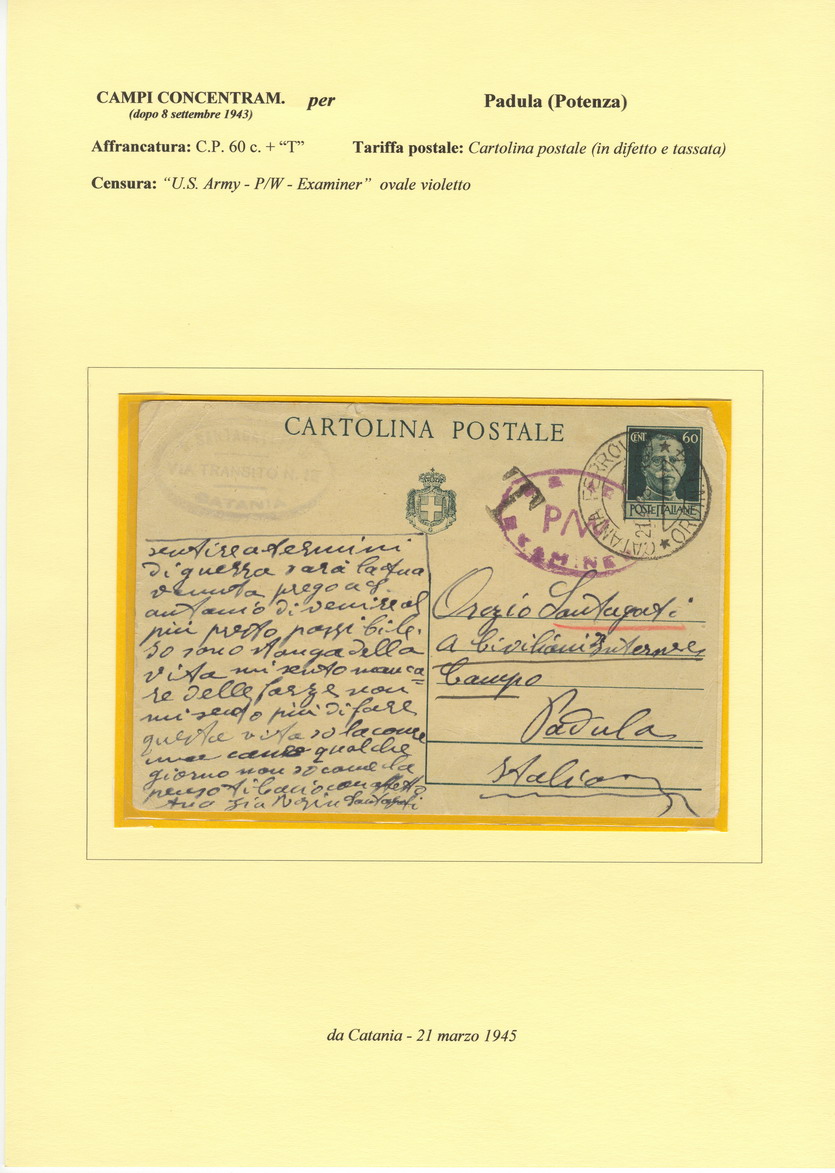 CAMPI CONCENTRAM. per Padula (Potenza)
(dopo 8 settembre 1943)
Affrancatura: C.P. 60 c. + “T” Tariffa postale: Cartolina postale (in difetto e tassata)
Censura: “U.S. Army - P/W - Examiner” ovale violetto
CARTOLINA POSTALE
CENT 60
POSTE ITALIANE
VIA TRANSITO N.
CATANIA
T
P/W
EXAMINE
CATANIA FERROV
21
sentire a termini
di guerra sarà la tua
venuta prego a
antonio di venire al
più presto possibile.
io sono stanga della
vita mi sento manca=
re delle forze non
mi sento più di fare
questa vita so la come
qualche
giorno non so come la
penso ti bacio con affetto
tua zia Santagati
Orazio Santagati
A Civiliani Internees
Campo
Padula
Italia
da Catania - 21 marzo 1945